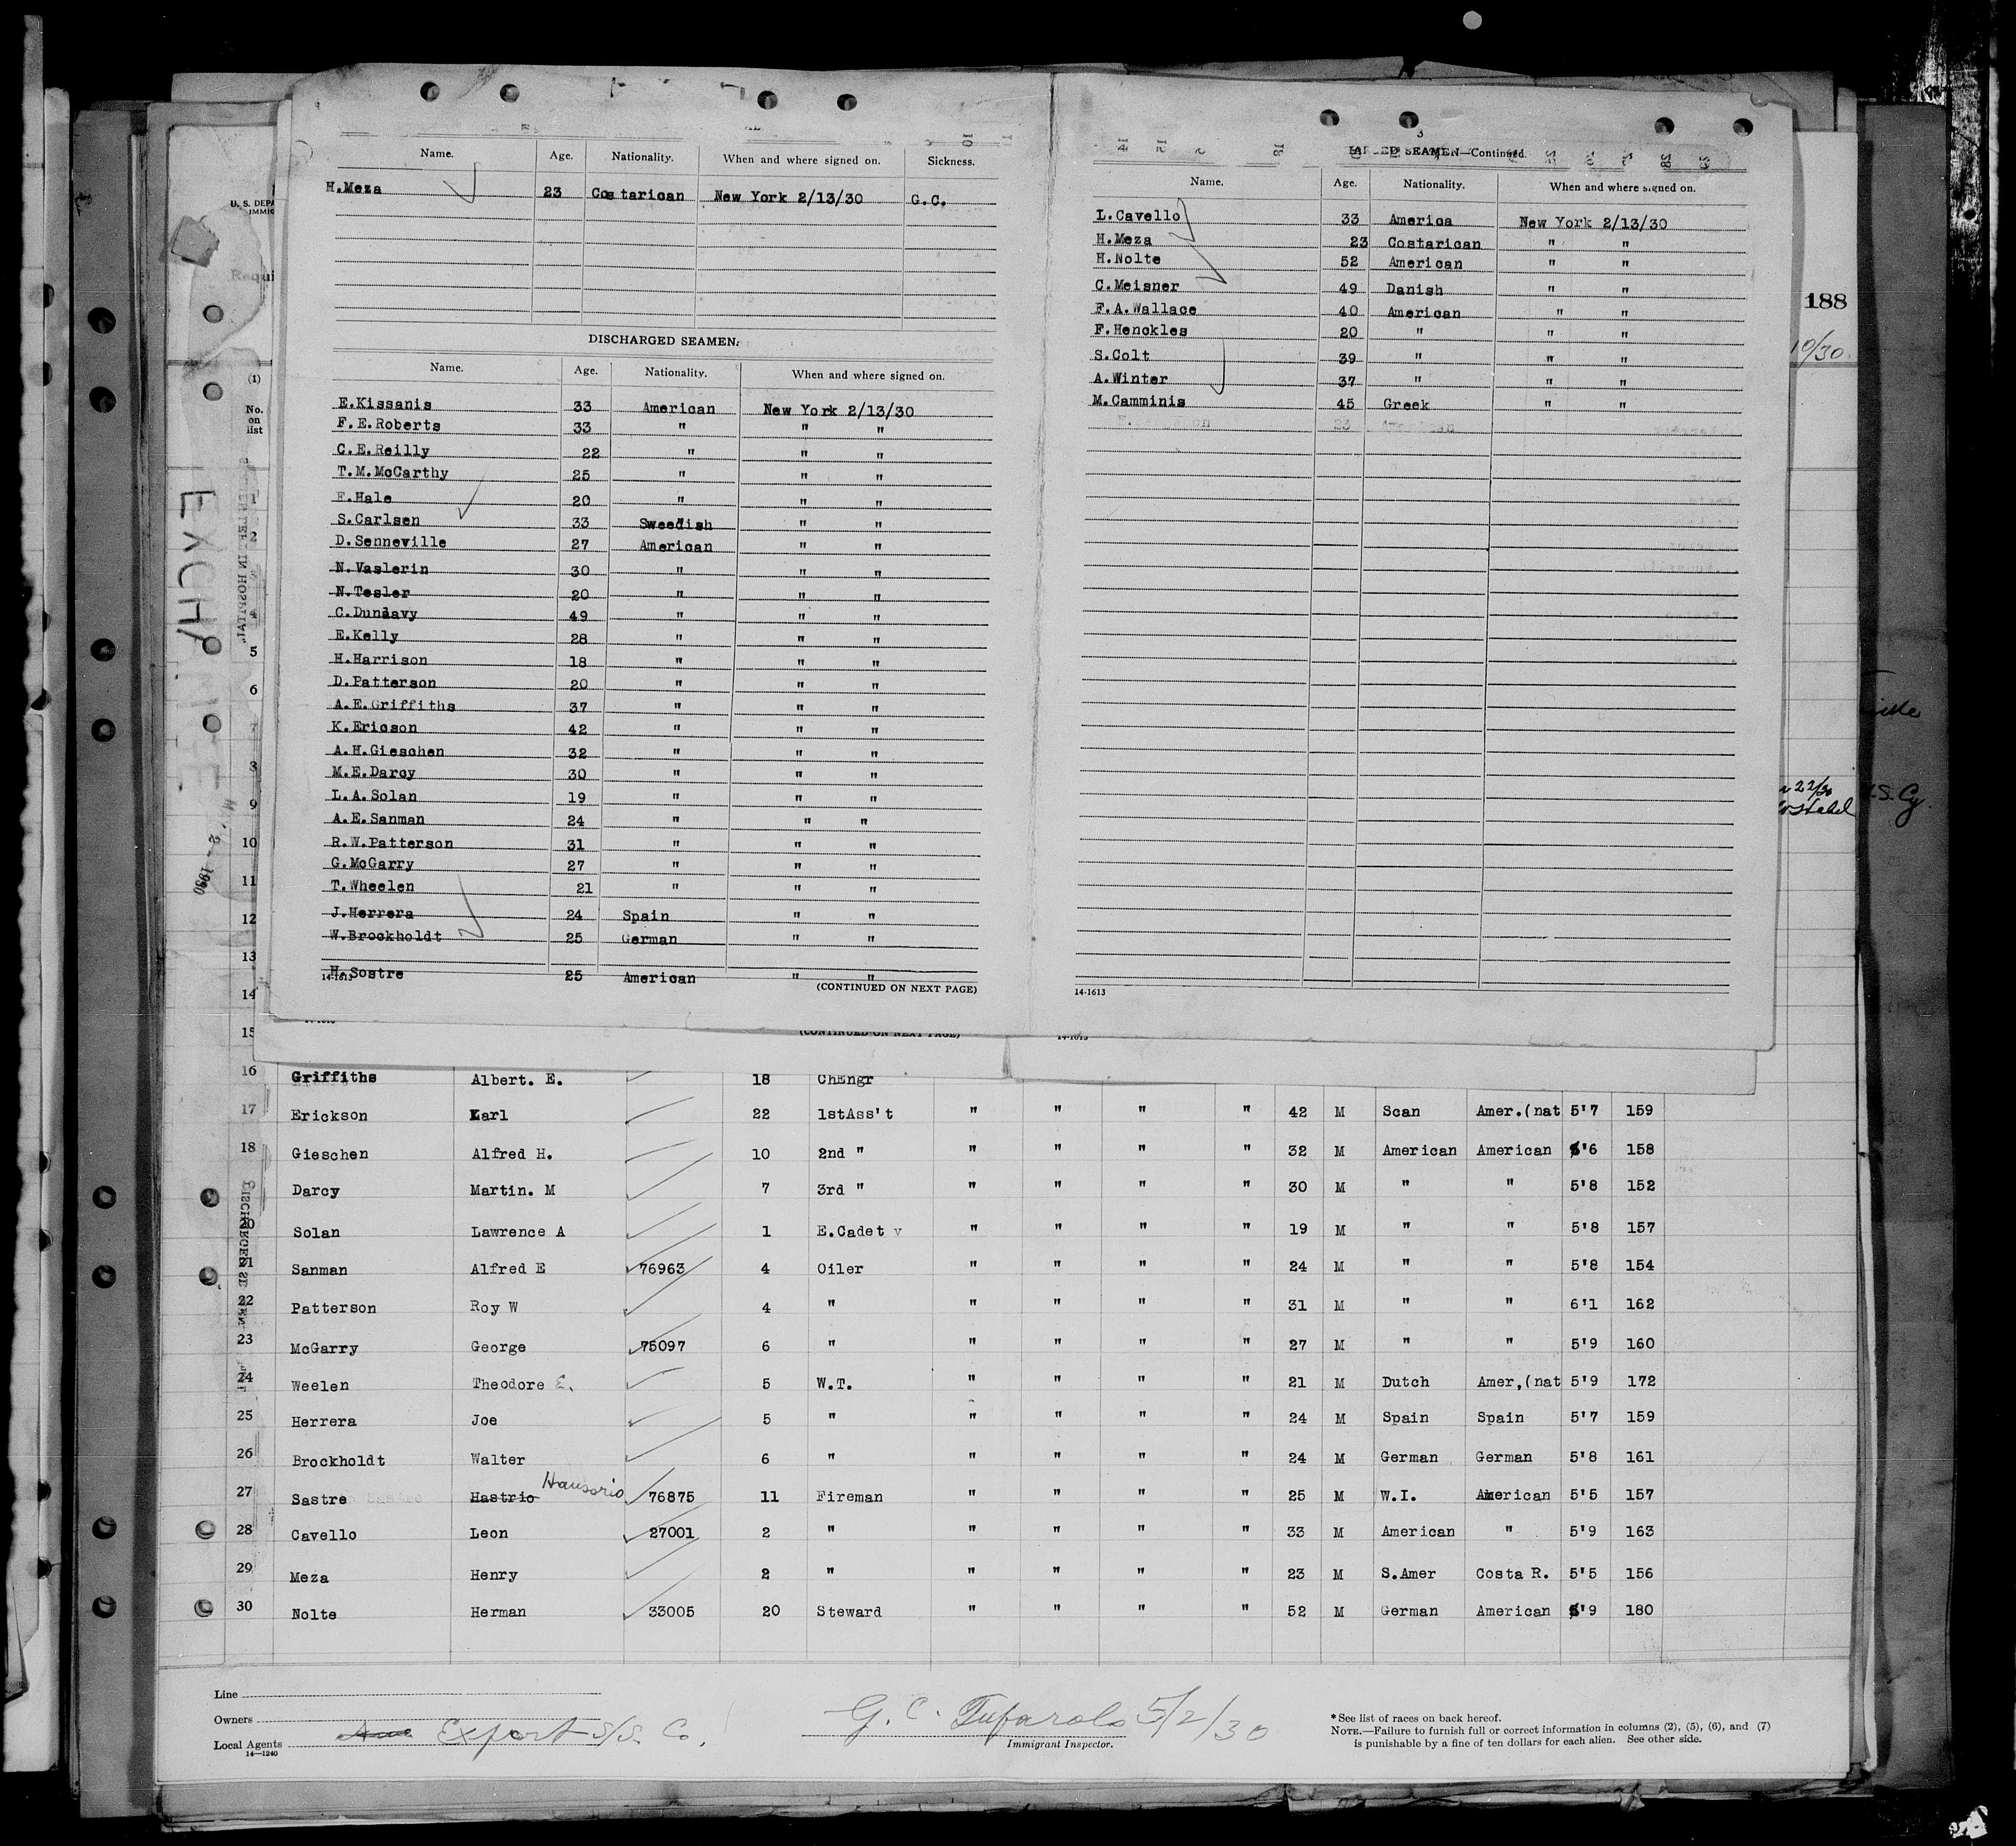 Name. Age. Nationality. When and where signed on. Sickness.
H.Meza 23 Costarican New York 2/13/30 G.C.
DISCHARGED SEAMEN.
Name. Age. Nationality. When and where signed on.
E.Kissanis 33 American New York 2/13/30
F.E.Roberts 33 " " "
C.E.Reilly 22 " " "
T.M.McCarthy 25 " " "
E.Hale 20 " " "
S.Carlsen 33 Sweedish " "
D.Senneville 27 American " "
N.Vaslerin 30 " " "
N.Tesler 20 " " "
C.Dunlavy 49 " " "
E.Kelly 28 " " "
H.Harrison 18 " " "
D.Patterson 20 " " "
A.E.Griffiths 37 " " "
K.Ericson 42 " " "
A.H.Gieschen 32 " " "
M.E.Darcy 30 " " "
L.A.Solan 19 " " "
A.E.Sanman 24 " " "
R.W.Patterson 31 " " "
G.McGarry 27 " " "
T.Wheelen 21 " " "
J.Herrera 24 Spain " "
W.Brockholdt 25 German " "
H.Sostre 25 American " "
14-1613 (CONTINUED ON NEXT PAGE)
3
SEAMEN—Continued.
Name. Age. Nationality. When and where signed on.
L.Cavello 33 America New York 2/13/30
H.Meza 23 Costarican " "
H.Nolte 52 American " "
C.Meisner 49 Danish " "
F.A.Wallace 40 American " "
F.Henckles 20 " " "
S.Colt 39 " " "
A.Winter 37 " " "
M.Camminis 45 Greek " "
23 American
14-1613
U. S. DEPA
IMMIG
Requi
188
10/30
(1)
No. on list
EXCH
1
2
3
4
5
6
7
8
9
10
11
12
13
14
15
(CONTINUED ON NEXT PAGE)
14-1613
16 Griffiths Albert. E. 18 ChEngr
17 Erickson Karl 22 1stAss't " " " " 42 M Scan Amer.(nat 5'7 159
18 Gieschen Alfred H. 10 2nd " " " " " 32 M American American 5'6 158
Darcy Martin. M 7 3rd " " " " " 30 M " " 5'8 152
20 Solan Lawrence A 1 E.Cadet v " " " " 19 M " " 5'8 157
21 Sanman Alfred E 76963 4 Oiler " " " " 24 M " " 5'8 154
22 Patterson Roy W 4 " " " " " 31 M " " 6'1 162
23 McGarry George 75097 6 " " " " " 27 M " " 5'9 160
24 Weelen Theodore E. 5 W.T. " " " " 21 M Dutch Amer,(nat 5'9 172
25 Herrera Joe 5 " " " " " 24 M Spain Spain 5'7 159
26 Brockholdt Walter 6 " " " " " 24 M German German 5'8 161
27 Sastre Hastrio 76875 11 Fireman " " " " 25 M W.I. American 5'5 157
28 Cavello Leon 27001 2 " " " " " 33 M American " 5'9 163
29 Meza Henry 2 " " " " " 23 M S.Amer Costa R. 5'5 156
30 Nolte Herman 33005 20 Steward " " " " 52 M German American 5'9 180
Line
Owners
Local Agents Export S/S. Co.
14—1240
G. C. Tufarolo 5/2/30
Immigrant Inspector.
*See list of races on back hereof.
NOTE.—Failure to furnish full or correct information in columns (2), (5), (6), and (7)
is punishable by a fine of ten dollars for each alien. See other side.